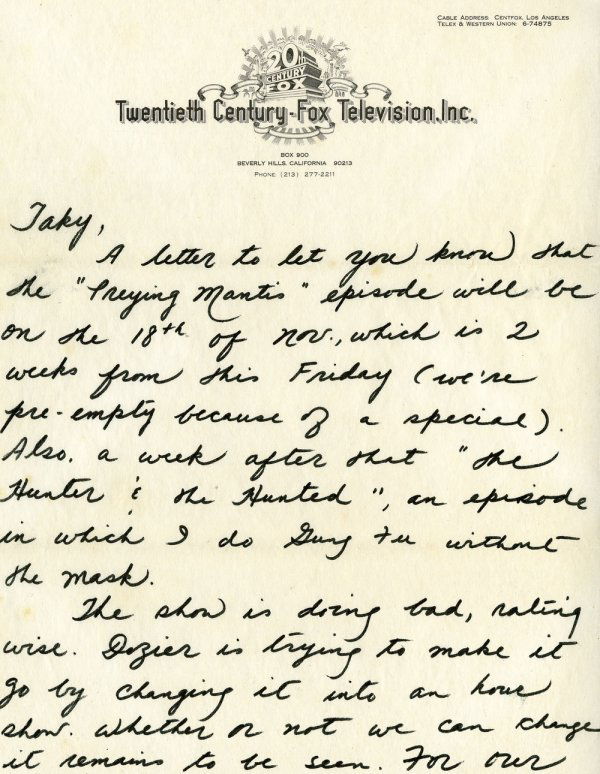 CABLE ADDRESS: CENTFOX, LOS ANGELES
TELEX & WESTERN UNION: 6-74875
20th
CENTURY
FOX
Twentieth Century-Fox Television, Inc.
BOX 900
BEVERLY HILLS, CALIFORNIA 90213
PHONE: (213) 277-2211
Taky,
A letter to let you know that
the "Preying Mantis" episode will be
on the 18th of Nov., which is 2
weeks from this Friday (we're
pre-empty because of a special).
Also. a week after that "the
Hunter & the Hunted", an episode
in which I do Gung Fu without
the mask.
The show is doing bad, rating
wise. Dozier is trying to make it
go by changing it into an hour
show. Whether or not we can change
it remains to be seen. For our